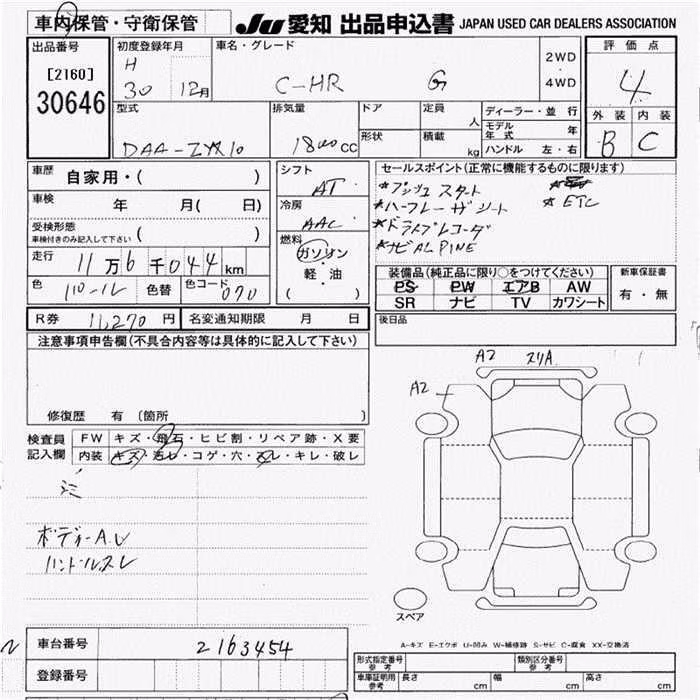 車内保管・守衛保管
JU 愛知 出品申込書 JAPAN USED CAR DEALERS ASSOCIATION
出品番号
[2160]
30646
初度登録年月
H
30 12月
車名・グレード
C-HR G
2WD
・
4WD
評価点
4
外装 内装
B C
型式
DAA-ZYX10
排気量
1800cc
ドア
形状
定員
人
積載
kg
ディーラー・並行
モデル年式 年
ハンドル 左・右
車歴
自家用・( )
車検
年 月( 日)
受検形態
車検付きのみ記入して下さい ( )
走行
11万6千044km
色
色替
色コード
070
シフト
AT
冷房
AAC
燃料
ガソリン
・
軽・油
( )
セールスポイント(正常に機能するものに限ります)
*プッシュスタート
*ハーフレーザーシート
*ドライブレコーダ
*ナビALPINE
*ETC
装備品(純正品に限り○をつけてください)
PS PW エアB AW
SR ナビ TV カワシート
新車保証書
有・無
R券 11,270円
名変通知期限 月 日
後日品
注意事項申告欄(不具合内容等は具体的に記入して下さい)
修復歴 有 (箇所 )
検査員
記入欄
FW キズ・飛石・ヒビ割・リペア跡・X要
内装 キズ・汚レ・コゲ・穴・スレ・キレ・破レ
ボディーA.U
ハンドルスレ
A2 スリA
A2
スペア
A-キズ E-エクボ U-凹み W-補修跡 S-サビ C-腐食 XX-交換済
車台番号 2163454
登録番号
形式指定番号
参考
類別区分番号
参考
車庫証明用
参考
長さ cm
幅 cm
高さ cm